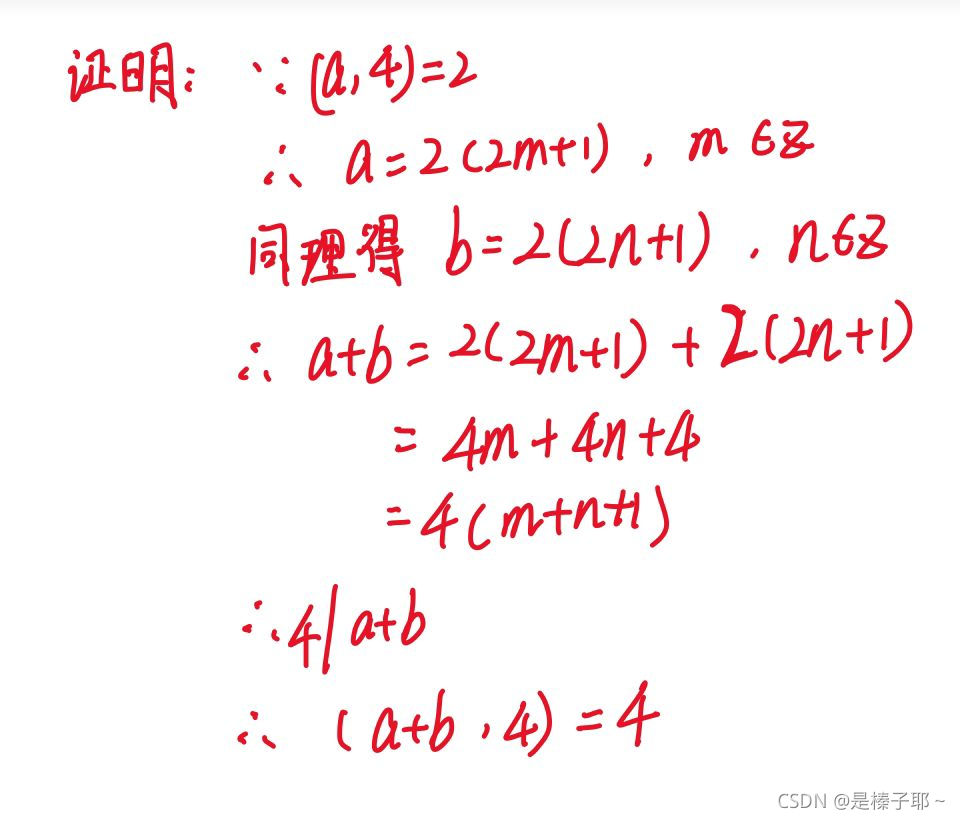 证明: ∵ (a,4)=2
∴ a=2(2m+1), m∈Z
同理得 b=2(2n+1), n∈Z
∴ a+b=2(2m+1)+2(2n+1)
=4m+4n+4
=4(m+n+1)
∴4|a+b
∴ (a+b,4)=4
CSDN @是榛子耶~